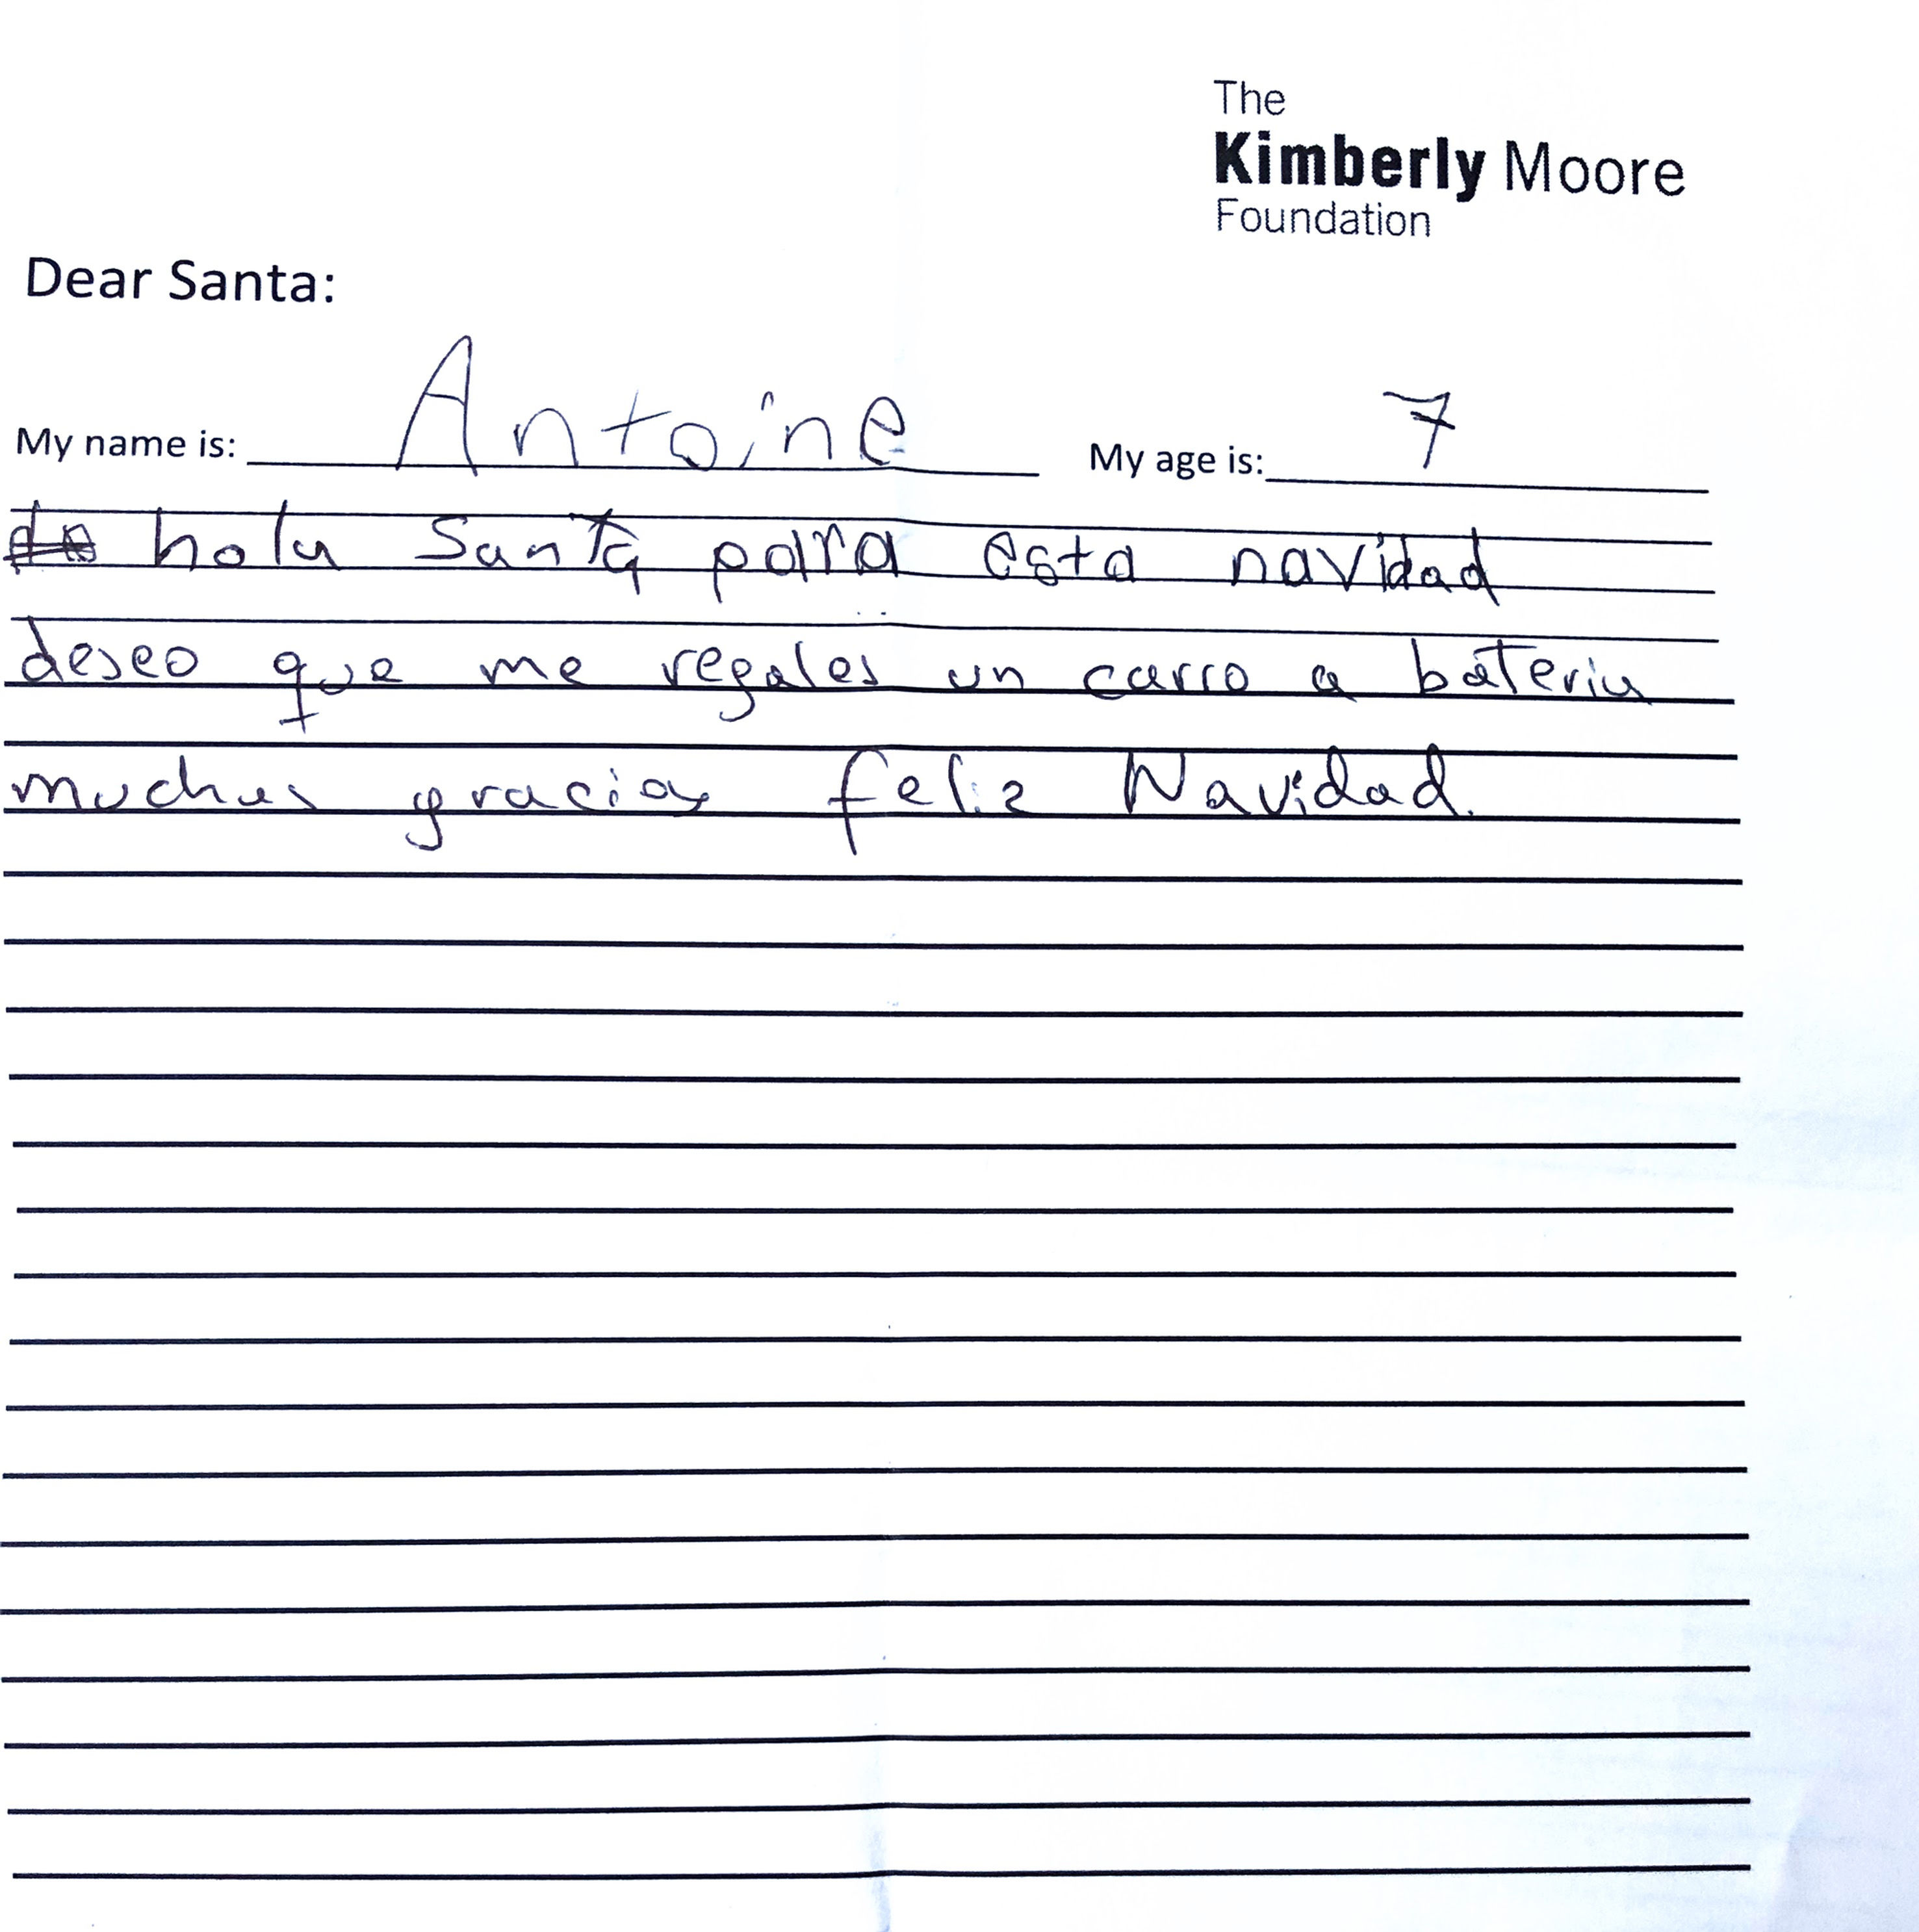 The
Kimberly Moore
Foundation
Dear Santa:
My name is: Antoine My age is: 7
hola Santa para esta navidad
deseo que me regales un carro a bateria
muchas gracias feliz Navidad.